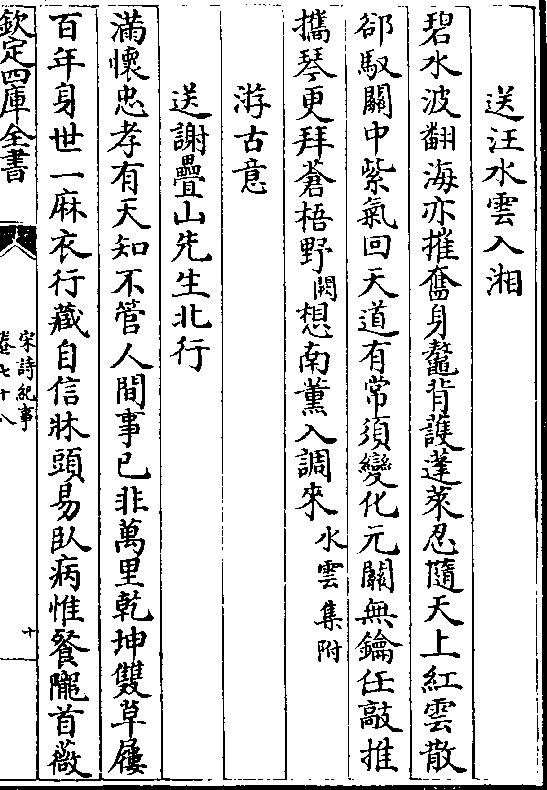 送汪水雲入湘
碧水波翻海亦摧奮身鼇背護蓬萊忍隨天上紅雲散
郤馭關中紫氣回天道有常須變化元關無鑰任敲推
攜琴更拜蒼梧野闕想南薰入調來水雲集附
游古意
送謝疊山先生北行
滿懷忠孝有天知不管人間事已非萬里乾坤雙草屨
百年身世一麻衣行藏自信牀頭易臥病惟餐隴首薇
欽定四庫全書
宋詩紀事
卷七十八
十